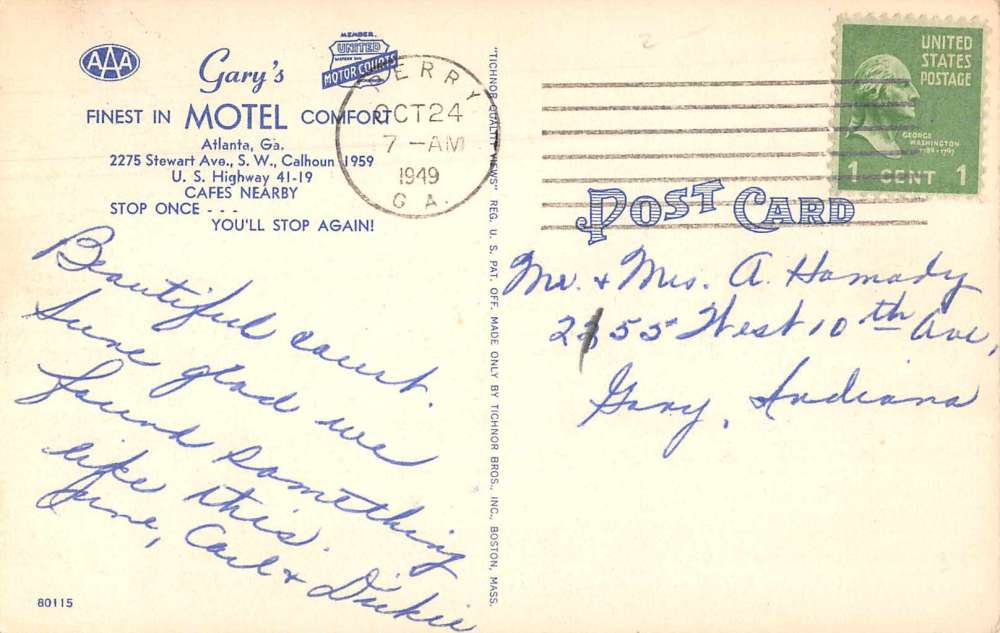 AAA
Gary's
MEMBER
UNITED
MOTOR COURTS
FINEST IN MOTEL COMFORT
Atlanta, Ga.
2275 Stewart Ave., S. W., Calhoun 1959
U. S. Highway 41-19
CAFES NEARBY
STOP ONCE - - -
YOU'LL STOP AGAIN!
PERRY
OCT 24
7 -AM
1949
GA.
Beautiful court.
Sure glad we
found something
like this.
June, Carl & Dickie
80115
"TICHNOR QUALITY VIEWS" REG. U. S. PAT. OFF. MADE ONLY BY TICHNOR BROS., INC., BOSTON, MASS.
UNITED
STATES
POSTAGE
GEORGE
WASHINGTON
1789-1797
1 CENT 1
POST CARD
Mr. & Mrs. A. Hamady
2355 West 10th Ave,
Gary, Indiana